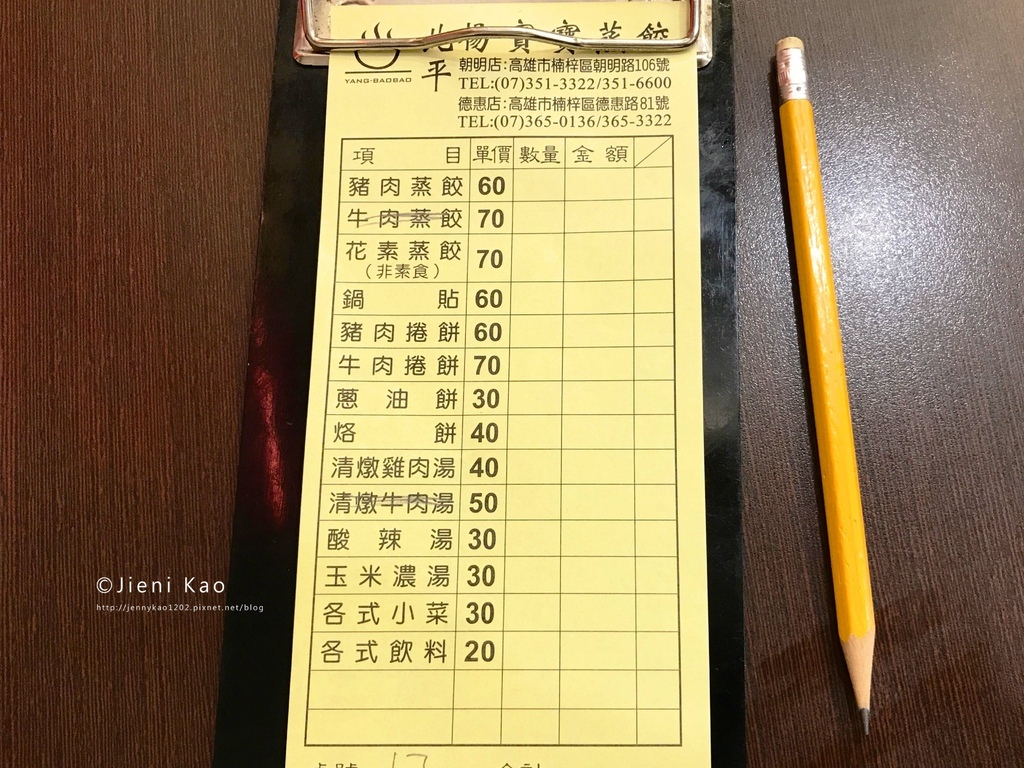 北平楊寶寶蒸餃
YANG-BAOBAO
朝明店:高雄市楠梓區朝明路106號
TEL:(07)351-3322/351-6600
德惠店:高雄市楠梓區德惠路81號
TEL:(07)365-0136/365-3322
項目 單價 數量 金額
豬肉蒸餃 60
牛肉蒸餃 70
花素蒸餃 70
(非素食)
鍋貼 60
豬肉捲餅 60
牛肉捲餅 70
蔥油餅 30
烙餅 40
清燉雞肉湯 40
清燉牛肉湯 50
酸辣湯 30
玉米濃湯 30
各式小菜 30
各式飲料 20
©Jieni Kao
http://jennykao1202.pixnet.net/blog